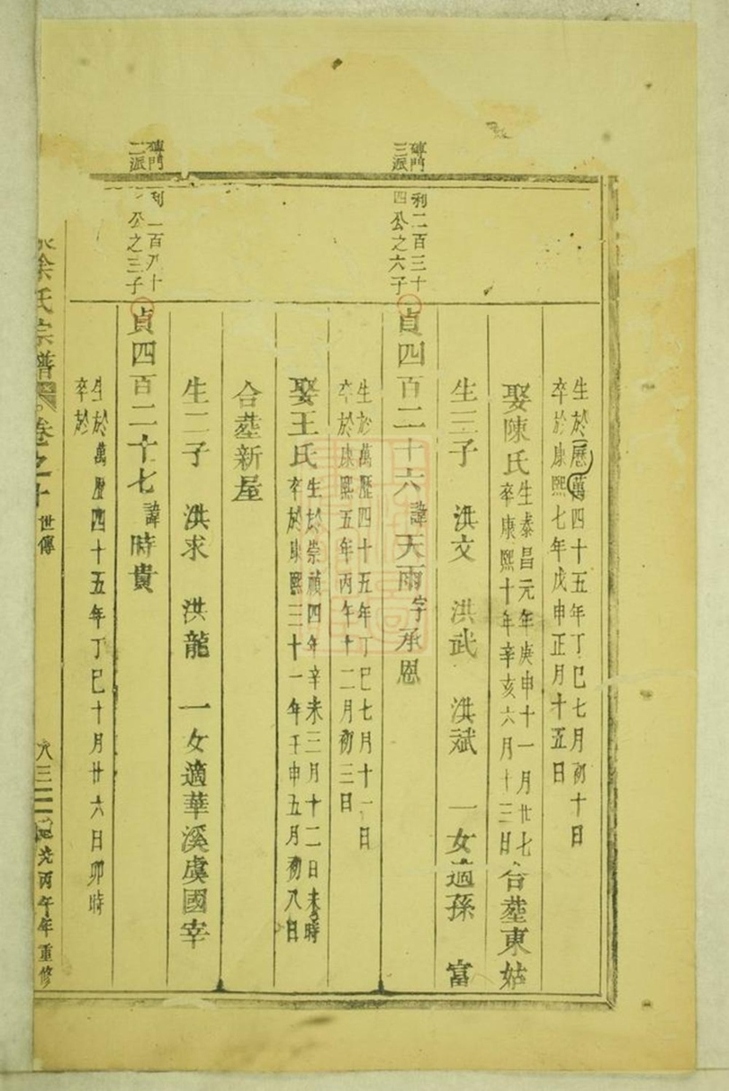 生於歷萬四十五年丁巳七月初十日
卒於康熙七年戊申正月十五日
娶陳氏生泰昌元年庚申十一月廿七
卒康熙十年辛亥六月十三日合塟東姑
生三子 洪文 洪武 洪斌 一女適孫 富
磚門三派
利二百三十四公之六子
貞四百二十六諱天雨字承恩
生於萬歷四十五年丁巳七月十一日
卒於康熙五年丙午十二月初三日
娶王氏生於崇禎四年辛未三月十二日未時
卒於康熙三十一年壬申五月初八日
合塟新屋
生二子 洪求 洪龍 一女適華溪虞國宰
磚門二派
利一百八十 公之三子
貞四百二十七諱時貴
生於萬歷四十五年丁巳十月廿六日卯時
卒於
徐氏宗譜 卷之十 世傳 八三二 光丙午年重修